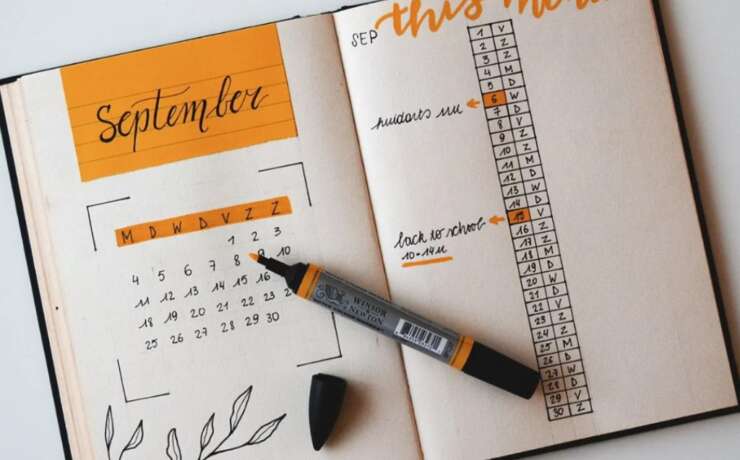 September
M D W D V Z Z
1 2 3
4 5 6 7 8 9 10
11 12 13 14 15 16
18 19 20 21 22 23
25 26 27 28 29 30
WINSOR
NEWTON
this
SEP
1 V
2 Z
3 Z
4 M
5 D
huidarts 11u
6 W
7 D
8 V
9 Z
10 Z
11 M
12 D
13 W
14 D
back to school
10-14u
15 V
16 Z
17 Z
18 M
19 D
20 W
21 D
22 V
23 Z
24 Z
25 M
26 D
27 W
28 D
29 V
30 Z